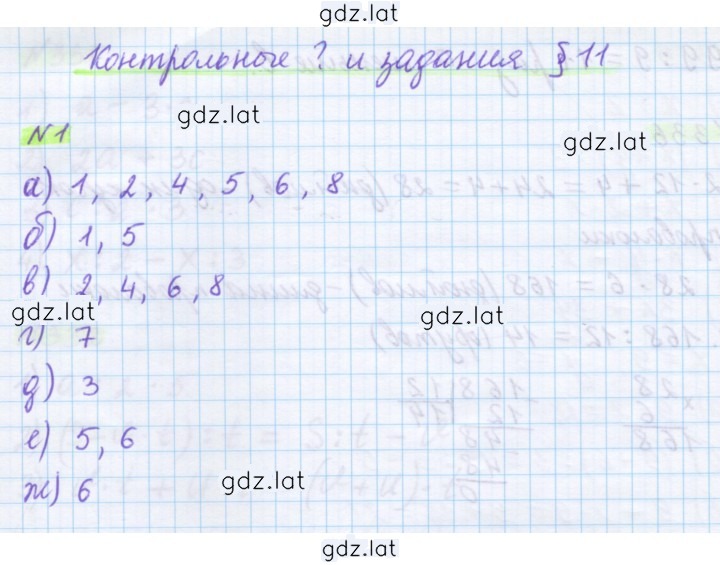 gdz.lat
Контрольные ? и задания § 11
gdz.lat
№1
gdz.lat
а) 1, 2, 4, 5, 6, 8
б) 1, 5
в) 2, 4, 6, 8
gdz.lat
gdz.lat
г) 7
д) 3
е) 5, 6
gdz.lat
ж) 6
gdz.lat